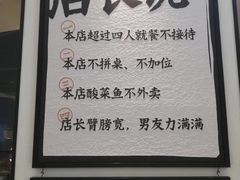 店长说
一 本店超过四人就餐不接待
二 本店不拼桌、不加位
三 本店酸菜鱼不外卖
四 店长臂膀宽，男友力满满